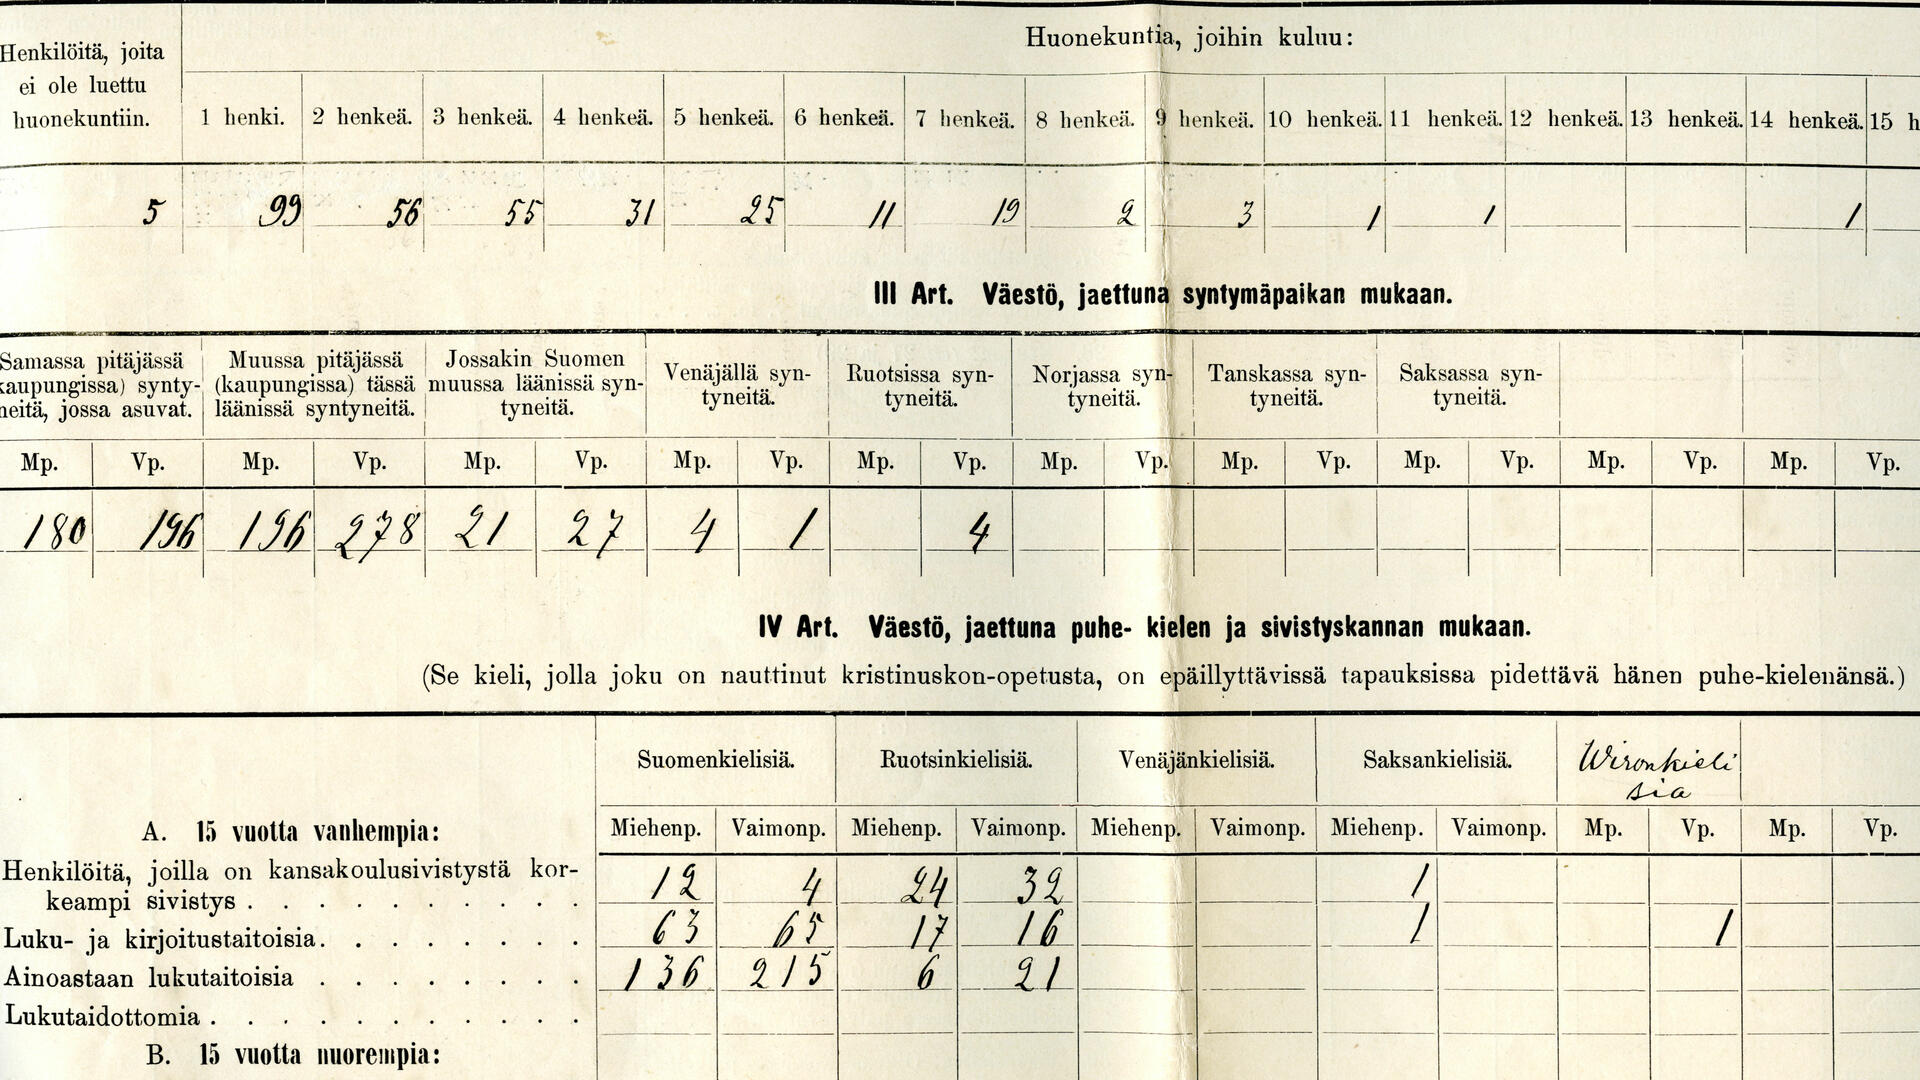 Henkilöitä, joita
ei ole luettu
huonekuntiin.
Huonekuntia, joihin kuluu:
1 henki. 2 henkeä. 3 henkeä. 4 henkeä. 5 henkeä. 6 henkeä. 7 henkeä. 8 henkeä. 9 henkeä. 10 henkeä. 11 henkeä. 12 henkeä. 13 henkeä. 14 henkeä. 15 h
5 99 56 55 31 25 11 19 2 3 1 1 1
III Art. Väestö, jaettuna syntymäpaikan mukaan.
Samassa pitäjässä
kaupungissa) synty-
neitä, jossa asuvat.
Muussa pitäjässä
(kaupungissa) tässä
läänissä syntyneitä.
Jossakin Suomen
muussa läänissä syn-
tyneitä.
Venäjällä syn-
tyneitä.
Ruotsissa syn-
tyneitä.
Norjassa syn-
tyneitä.
Tanskassa syn-
tyneitä.
Saksassa syn-
tyneitä.
Mp. Vp. Mp. Vp. Mp. Vp. Mp. Vp. Mp. Vp. Mp. Vp. Mp. Vp. Mp. Vp. Mp. Vp. Mp. Vp.
180 196 196 278 21 27 4 1 4
IV Art. Väestö, jaettuna puhe- kielen ja sivistyskannan mukaan.
(Se kieli, jolla joku on nauttinut kristinuskon-opetusta, on epäillyttävissä tapauksissa pidettävä hänen puhe-kielenänsä.)
Suomenkielisiä. Ruotsinkielisiä. Venäjänkielisiä. Saksankielisiä. Wironkieli
siä
A. 15 vuotta vanhempia: Miehenp. Vaimonp. Miehenp. Vaimonp. Miehenp. Vaimonp. Miehenp. Vaimonp. Mp. Vp. Mp. Vp.
Henkilöitä, joilla on kansakoulusivistystä kor-
keampi sivistys . . . . . . . . . . 12 4 24 32 1
Luku- ja kirjoitustaitoisia. . . . . . . . 63 65 17 16 1 1
Ainoastaan lukutaitoisia . . . . . . . . 136 215 6 21
Lukutaidottomia . . . . . . . . . . .
B. 15 vuotta nuorempia: